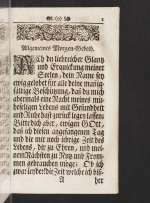 1
Allgemeines Morgen-Gebeth.
Ach du liebreicher Glantz
und Erquickung meiner
Seelen, dein Name sey
ewig gelobet für alle deine mannig-
Beschützung, daß du mich
abermals eine Nacht meines müh-
seeligen Lebens mit Gesundheit
und Ruhe hast zurück legen lassen;
Bitte dich aber, ewiger GOtt,
das ich diesen angefangenen Tag
und die mir noch übrige Zeit des
Lebens, dir zu Ehren, und mei-
nem Nächsten zu Nutz und From-
men gebrauchen möge: O ich
die Zeit welche ich bis-
A
her